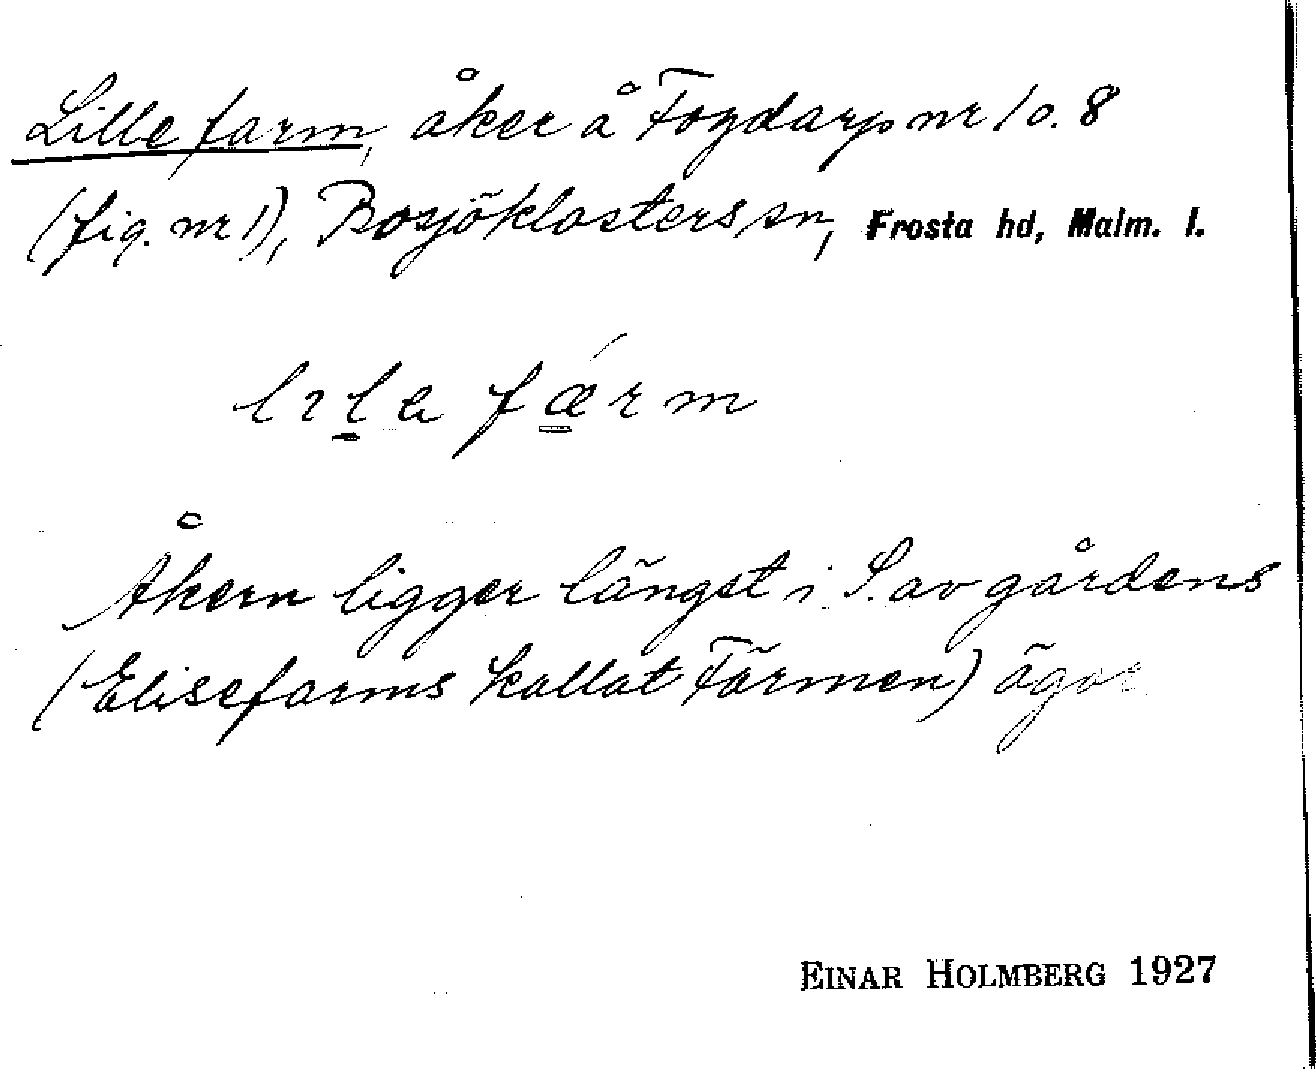 Lille farm, åker å Fogdarp nr 1 o. 8
(fig. nr 1), Bosjöklosters sn, Frosta hd, Malm. l.
lıla færm
Åkern ligger längst i S. av gårdens
(Elisefarms kallat Färmen) ägor
EINAR HOLMBERG 1927